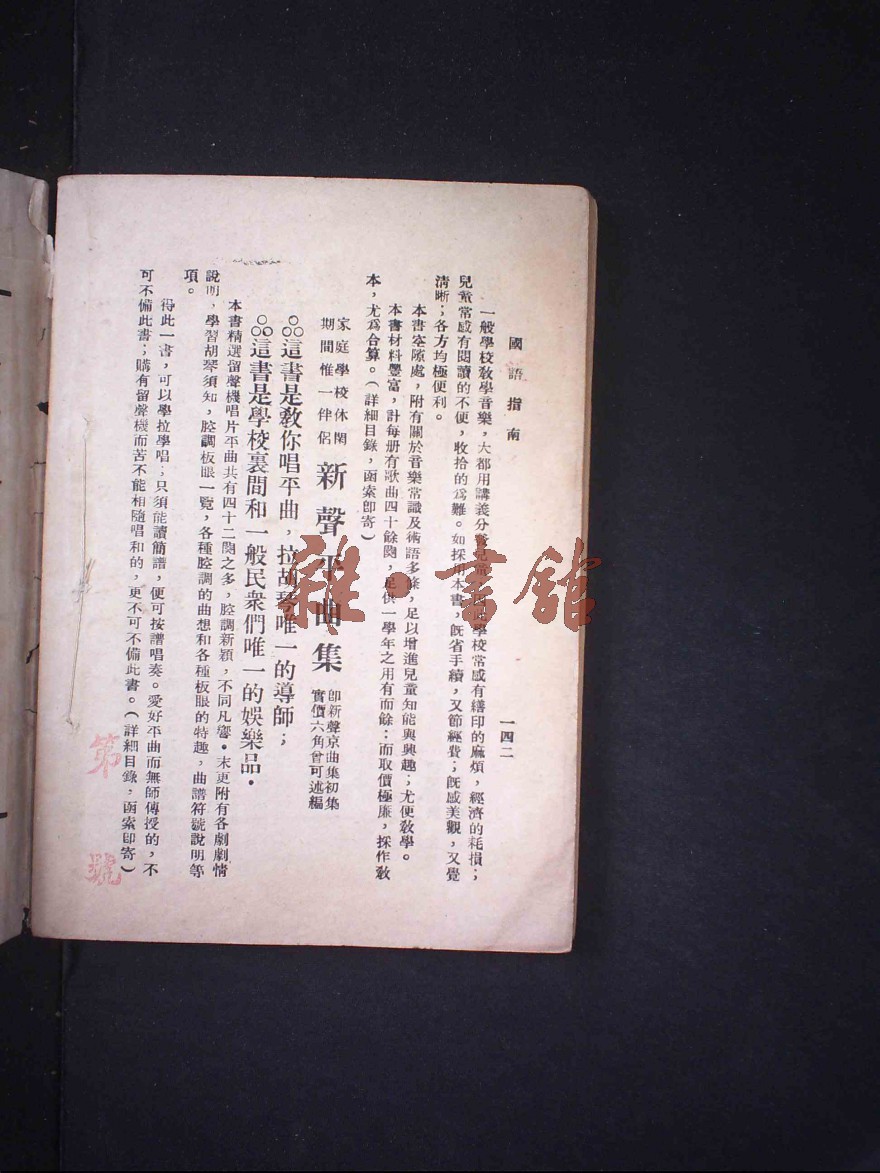 國語指南
一四二
一般學校教學音樂，大都用講義分發兒童學校常感有繕印的麻煩，經濟的耗損；
兒童常感有閱讀的不便，收拾的爲難。如採用本書，旣省手續，又節經費；旣感美觀，又覺
清晰；各方均極便利。
本書空隙處，附有關於音樂常識及術語多條，足以增進兒童知能與興趣；尤便敎學。
本書材料豐富，計每册有歌曲四十餘闋，足供一學年之用有而餘；而取價極廉，採作敎
本，尤爲合算。（詳細目錄，函索卽寄）
家庭學校休閑
期間惟一伴侶
新聲平曲集
卽新聲京曲集初集
實價六角曾可述編
○○這書是敎你唱平曲，拉胡琴唯一的導師；
○○這書是學校裏間和一般民衆們唯一的娛樂品。
本書精選留聲機唱片平曲共有四十二闋之多，腔調新穎，不同凡響。末更附有各劇劇情
說明，學習胡琴須知，腔調板眼一覽，各種腔調的曲想和各種板眼的特趣，曲譜符號說明等
項。
得此一書，可以學拉學唱；只須能讀簡譜，便可按譜唱奏。愛好平曲而無師傅授的，不
可不備此書；購有留聲機而苦不能相隨唱和的，更不可不備此書。（詳細目錄，函索卽寄）
第 號
雅·書館